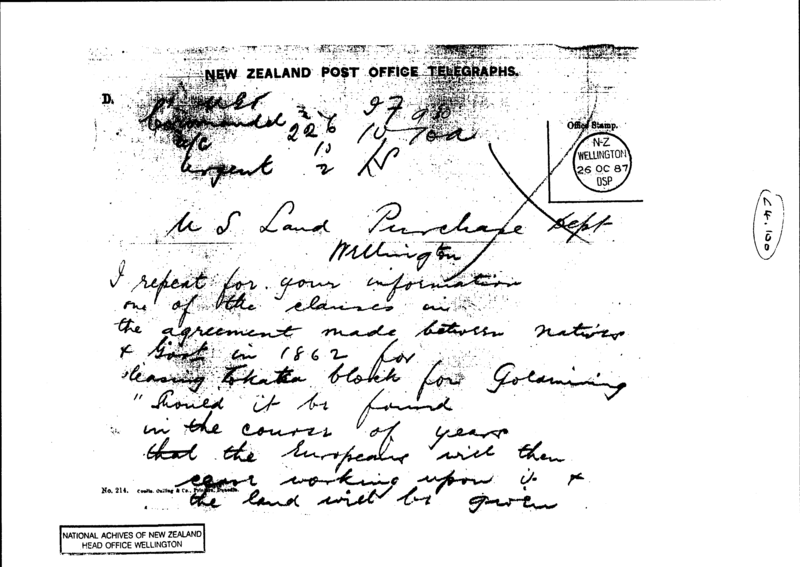 NEW ZEALAND POST OFFICE TELEGRAPHS.
D.
27
Coromandel 9
a/c 226 10
10
urgent 2
Office Stamp.
N-Z
WELLINGTON
26 OC 87
DSP
U S Land Purchase Dept
Wellington
I repeat for your information
one of the clauses in
the agreement made between natives
& Govt in 1862 for
leasing Tokatea block for Goldmining
"Should it be found
in the course of years
that the Europeans will then
cease working upon it &
No. 214.
the land will be given
NATIONAL ACHIVES OF NEW ZEALAND
HEAD OFFICE WELLINGTON